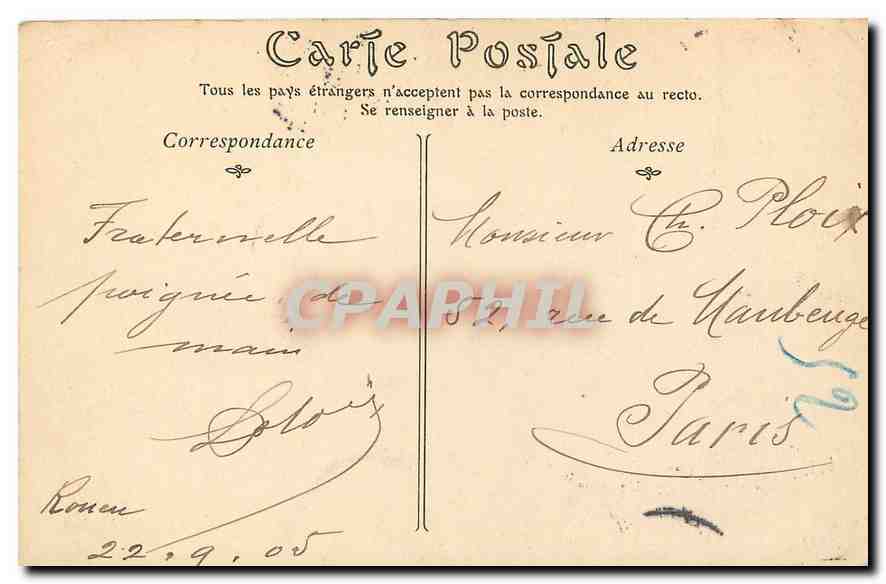 Carte Postale
Tous les pays étrangers n'acceptent pas la correspondance au recto.
Se renseigner à la poste.
Correspondance
Adresse
Fraternelle
poignée de
main
Rouen
22.9.05
Monsieur Ch. Ploix
52, rue de Maubeuge
Paris
CPAPHIL